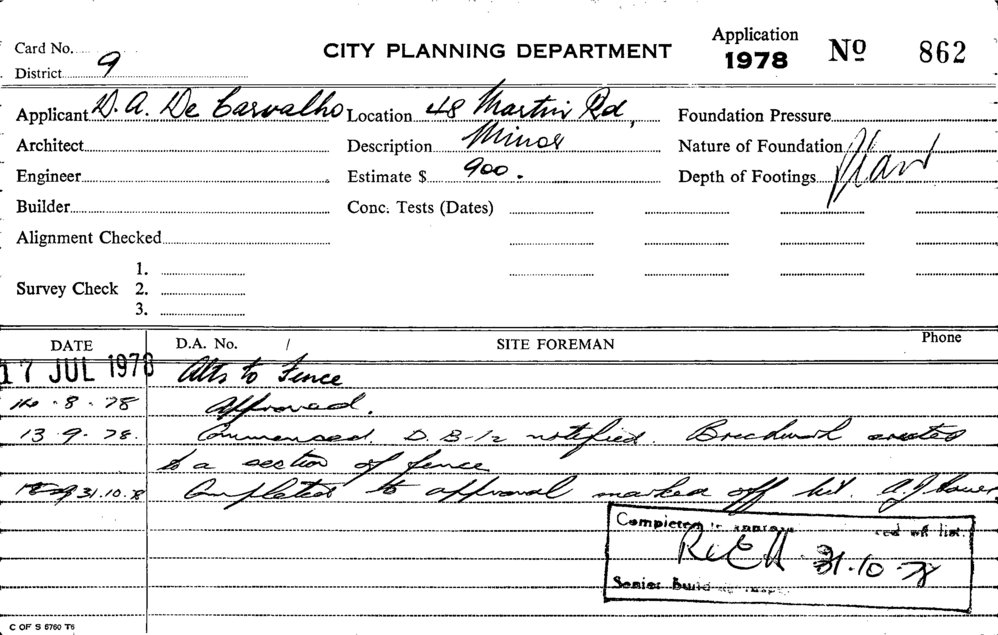 Card No. CITY PLANNING DEPARTMENT Application 1978 Nº 862
District 9
Applicant D. A. De Carvalho Location 48 Martin Rd, Foundation Pressure
Architect Description Minor Nature of Foundation
Engineer Estimate $ 900. Depth of Footings
Builder Conc. Tests (Dates)
Alignment Checked
1.
Survey Check 2.
3.
DATE D.A. No. / SITE FOREMAN Phone
17 JUL 1978 Alts to Fence
8.78 Approved.
13.9.78. Commenced notified. Brickwork erected
to a section of fence
31.10.78 Completed to approval marked off list.
Completed off list.
31.10.78
Senior Build
C OF S 5760 T6